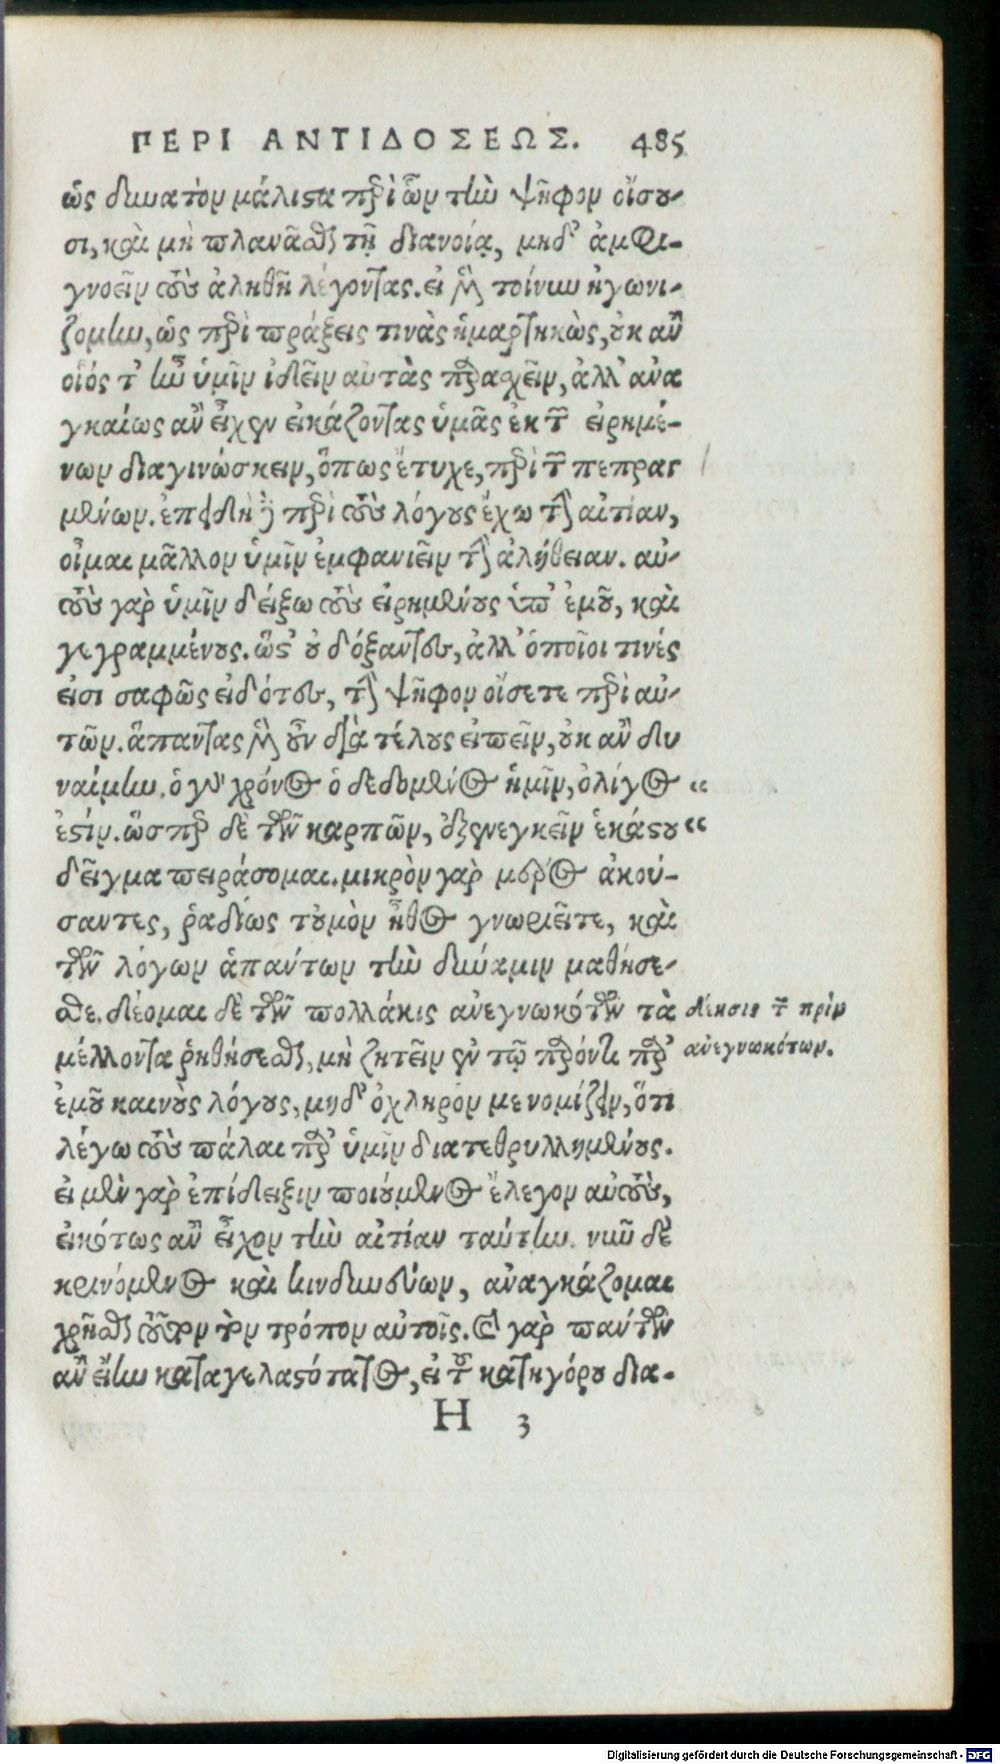 ΠΕΡΙ ΑΝΤΙΔΟΣΕΩΣ. 485
ὡς δυνατὸν μάλιστα περὶ ὧν τὴν ψῆφον οἴσου-
σι, καὶ μὴ πλανᾶσθαι τῇ διανοίᾳ, μηδ' ἀμφι-
γνοεῖν τοὺς ἀληθῆ λέγοντας. εἰ μὲν τοίνυν ἠγωνι-
ζόμην, ὡς περὶ πράξεις τινὰς ἡμαρτηκὼς, οὐκ ἂν
οἷός τ' ἦν ὑμῖν ἰδεῖν αὐτὰς παρασχεῖν, ἀλλ' ἀνα
γκαίως ἂν εἶχεν εἰκάζοντας ὑμᾶς ἐκ τῶν εἰρημέ-
νων διαγινώσκειν, ὅπως ἔτυχε, περὶ τῶν πεπραγ
μένων. ἐπειδὴ δὲ περὶ τοὺς λόγους ἔχω τὴν αἰτίαν,
οἶμαι μᾶλλον ὑμῖν ἐμφανιεῖν τὴν ἀλήθειαν. αὐ-
τοὺς γὰρ ὑμῖν δείξω τοὺς εἰρημένους ὑπ' ἐμοῦ, καὶ
γεγραμμένους. ὥστ' οὐ δόξαντες, ἀλλ' ὁποῖοι τινές
εἰσι σαφῶς εἰδότες, τὴν ψῆφον οἴσετε περὶ αὐ-
τῶν. ἅπαντας μὲν οὖν διὰ τέλους εἰπεῖν, οὐκ ἂν δυ
ναίμην. ὁ γὰρ χρόνος ὁ δεδομένος ἡμῖν, ὀλίγος “
ἐστίν. ὥσπερ δὲ τῶν καρπῶν, ἐξενεγκεῖν ἑκάστου “
δεῖγμα πειράσομαι. μικρὸν γὰρ μέρος ἀκού-
σαντες, ῥαδίως τοὐμὸν ἦθος γνωριεῖτε, καὶ
τῶν λόγων ἁπάντων τὴν δύναμιν μαθήσε-
σθε. δέομαι δὲ τῶν πολλάκις ἀνεγνωκότων τὰ
δέησις τῶν πρὶν
ἀνεγνωκότων.
μέλλοντα ῥηθήσεσθαι, μὴ ζητεῖν ἐν τῷ παρόντι παρ'
ἐμοῦ καινοὺς λόγους, μηδ' ὀχληρόν με νομίζειν, ὅτι
λέγω τοὺς πάλαι παρ' ὑμῖν διατεθρυλλημένους.
εἰ μὲν γὰρ ἐπίδειξιν ποιούμενος ἔλεγον αὐτοὺς,
εἰκότως ἂν εἶχον τὴν αἰτίαν ταύτην. νῦν δὲ
κρινόμενος καὶ κινδυνεύων, ἀναγκάζομαι
χρῆσθαι τοῦτον τὸν τρόπον αὐτοῖς. καὶ γὰρ πάντων
ἂν εἴην καταγελαστότατος, εἰ τοῦ κατηγόρου δια-
H 3
Digitalisierung gefördert durch die Deutsche Forschungsgemeinschaft - DFG